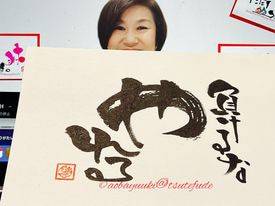 負けるな。
やれる
©aobayuuki@tsutefude